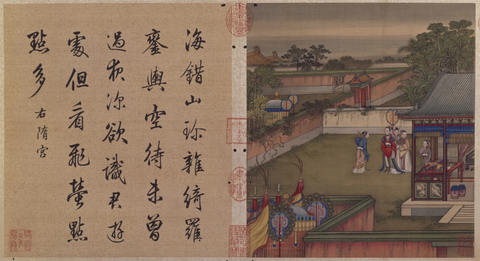 海錯山珎雜綺羅
鑾輿空待未曾
過夜深欲識君遊
處但看飛螢點
點多 右隋宮